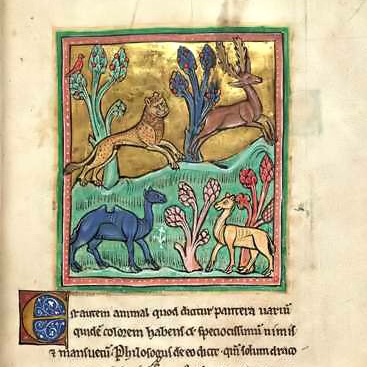 Est autem animal quod dicitur pantera uariū
quidē colorem habens et speciocissimū nimis
⁊ mansuetū. Philosogus de eo dicit. qm̄ solum draco